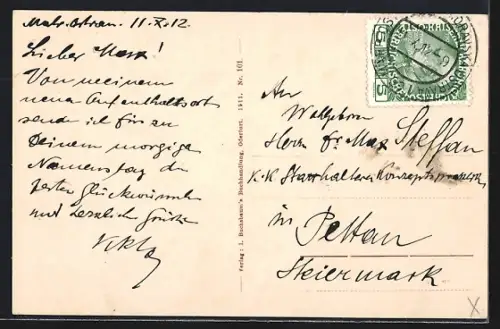 Mähr. Ostrau. 11.X.12.
Lieber Max!
Von meinem
neuen Aufenthaltsort
sende ich für an
Deinem morgigen
Namenstag die
besten Glückwünsche
und herzliche Grüße
Verlag: I. Buchsbaum's Buchhandlung, Oderfurt. 1911. Nr. 101.
5
5
An
Wohlgeboren
Herrn Dr Max Steffan
K.K. Statthalterei Konzeptspraktikant
in Pettau
Steiermark
X